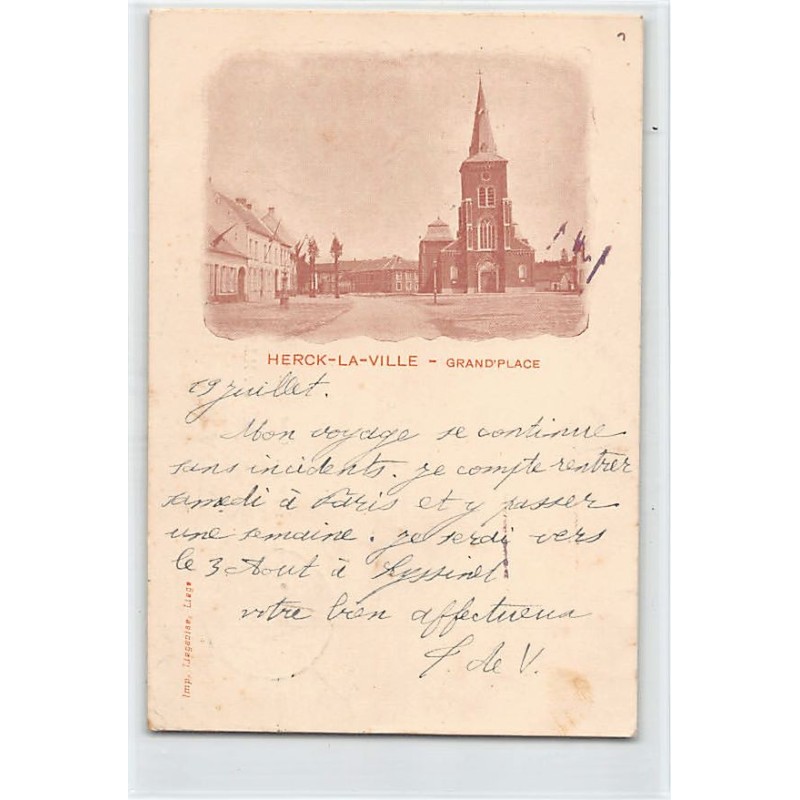 HERCK-LA-VILLE - GRAND'PLACE
19 juillet.
Mon voyage se continue
sans incidents. je compte rentrer
samedi à Paris et y passer
une semaine. je serai vers
le 3 Aout à
votre bien affectueux
de V.
Imp. Liegeoise, Liege